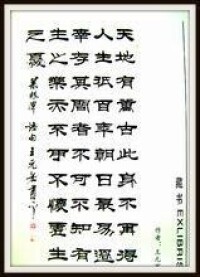 天地有萬古此身不再得
人生祇百年朝日最易過
幸存其間者不可不知有
生之樂亦不可不懷虛生
之憂
菜根譚語句王元
藏书 EXLIBRIS
作者：王元